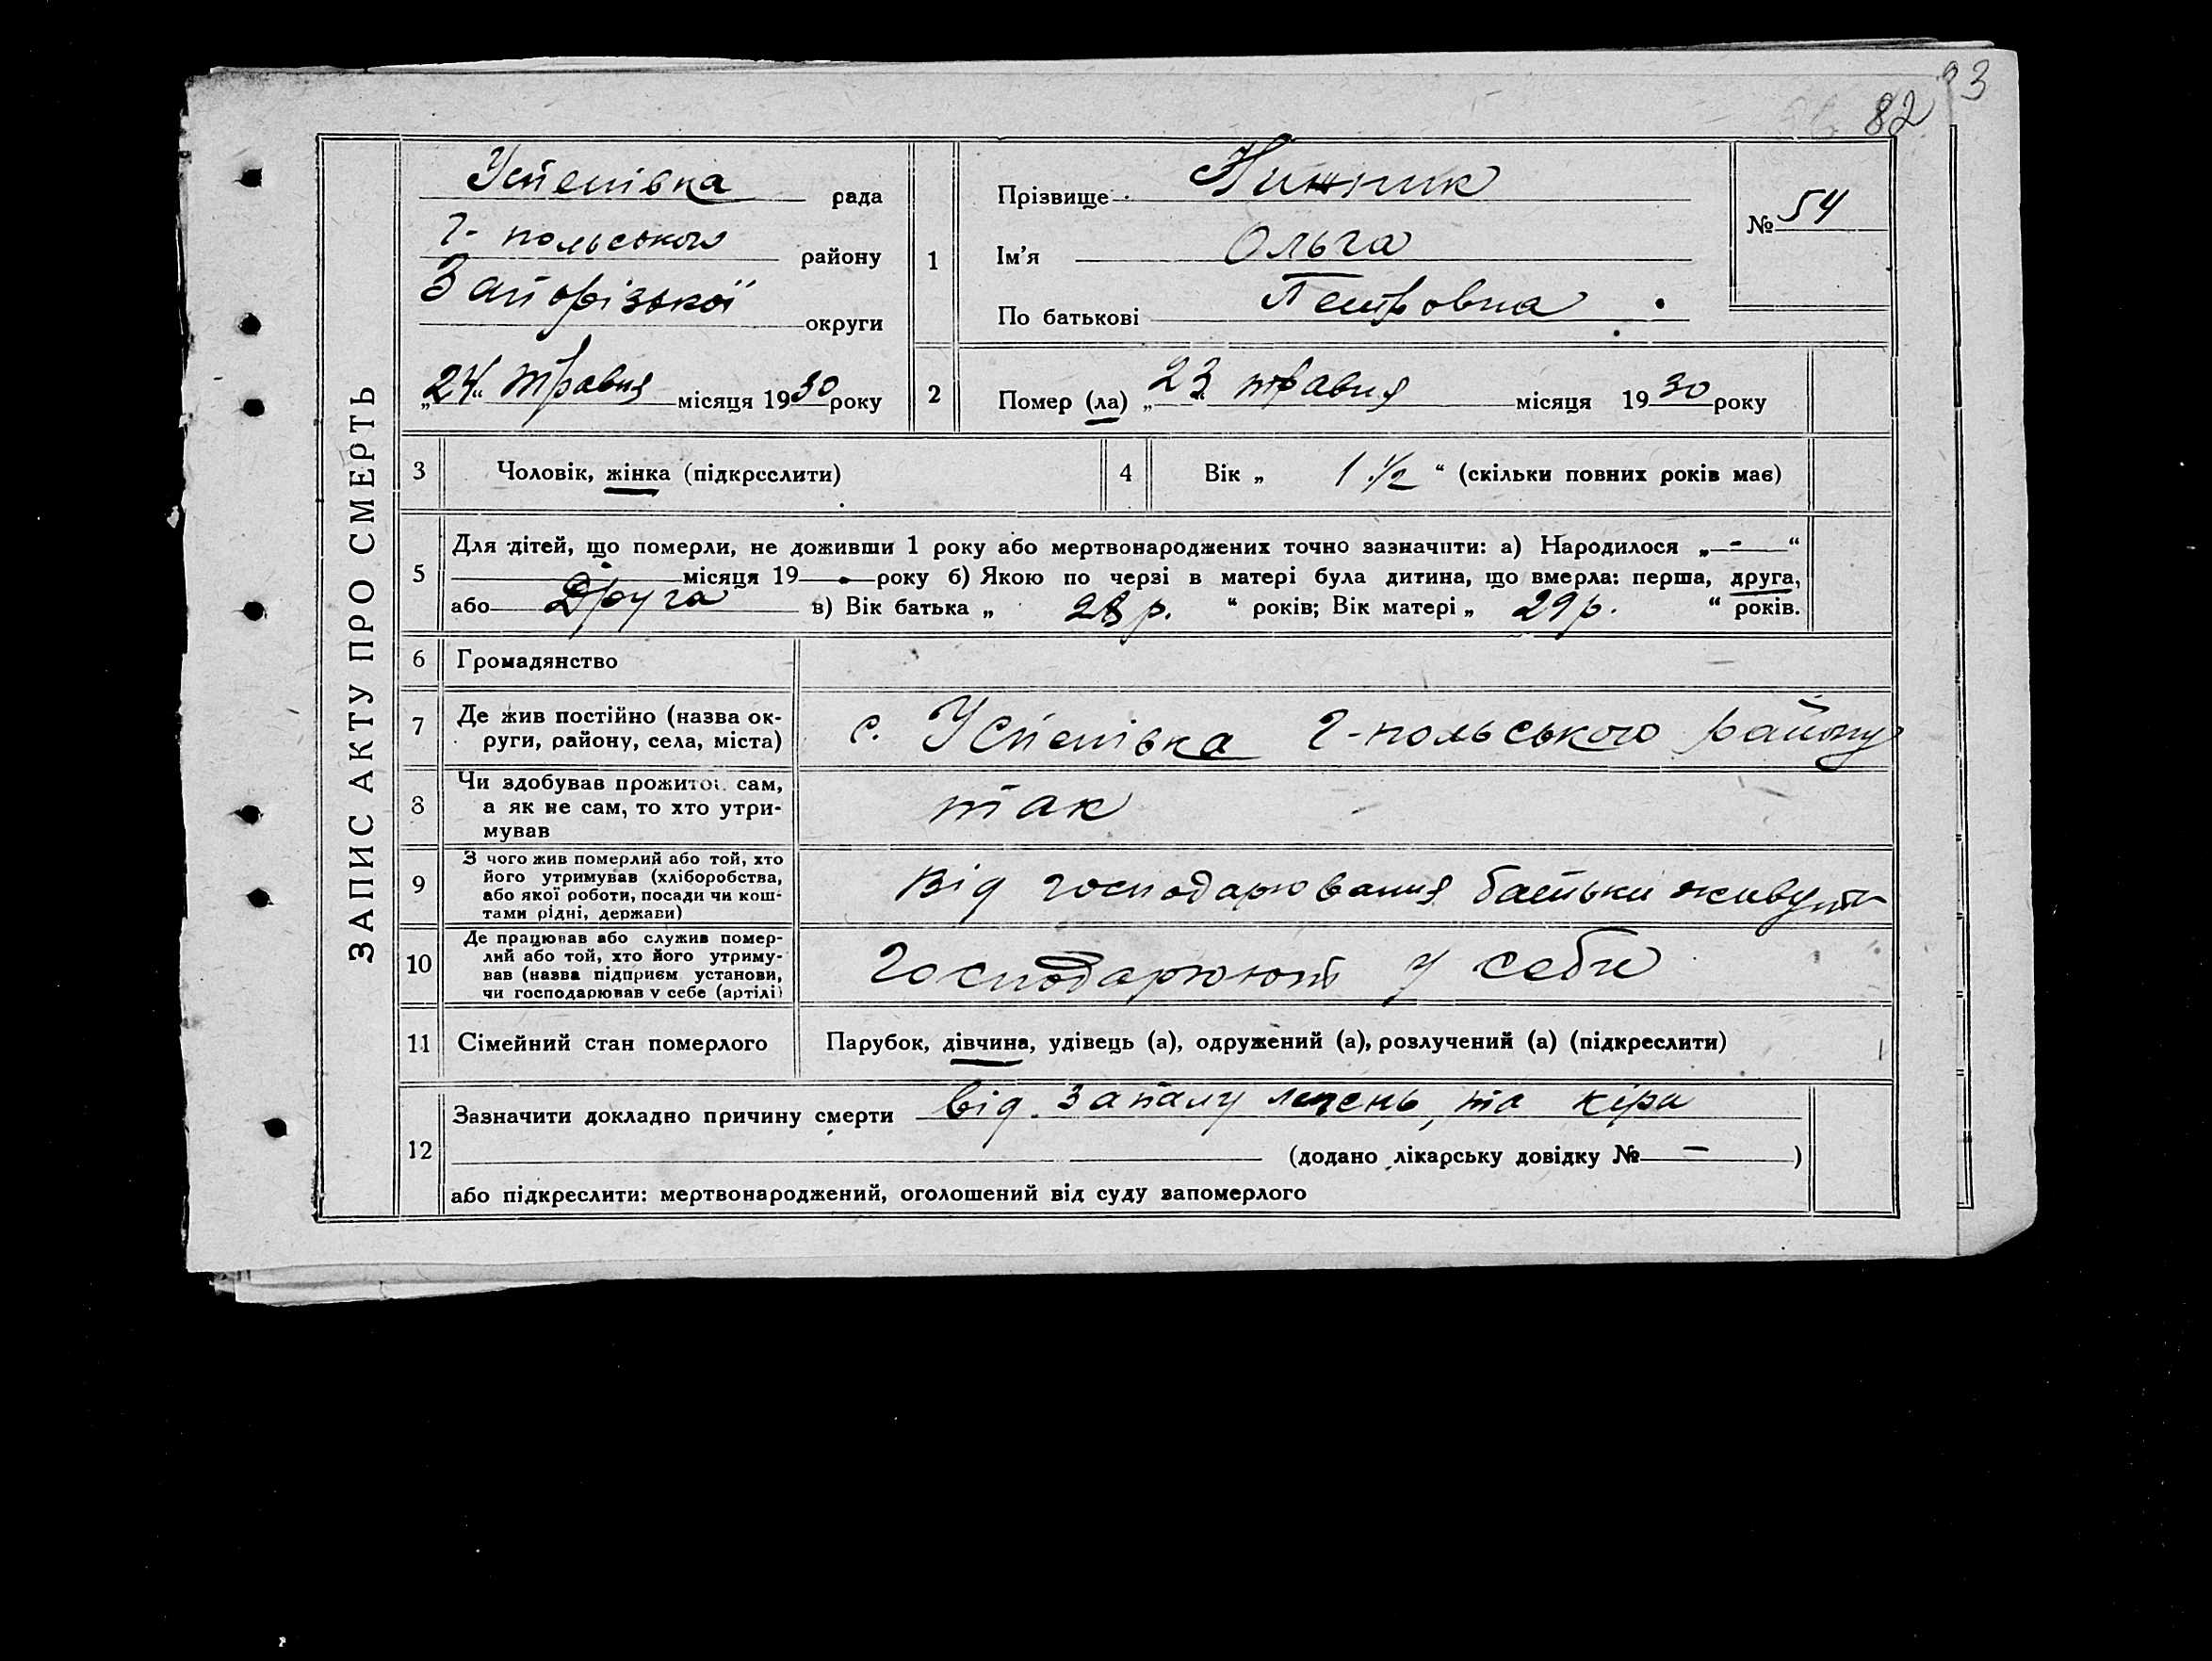 93
82
ЗАПИС АКТУ ПРО СМЕРТЬ
Успенівка рада
Г-польського району
Запорізької округи
„24“ травня місяця 1930 року
1
Прізвище Нижник
Ім'я Ольга
По батькові Петровна
№ 54
2
Помер (ла) „23“ травня місяця 1930 року
3
Чоловік, жінка (підкреслити)
4
Вік „ 1 ½ “ (скільки повних років має)
5
Для дітей, що померли, не доживши 1 року або мертвонароджених точно зазначити: а) Народилося „-“
місяця 19 року б) Якою по черзі в матері була дитина, що вмерла: перша, друга,
або Друга в) Вік батька „ 28 р. “ років; Вік матері „ 29 р. “ років.
6
Громадянство
7
Де жив постійно (назва ок-
руги, району, села, міста)
с. Успенівка Г-польського району
8
Чи здобував прожиток сам,
а як не сам, то хто утри-
мував
так
9
З чого жив померлий або той, хто
його утримував (хліборобства,
або якої роботи, посади чи кош-
тами рідні, держави)
Від господарювання батьки живуть
10
Де працював або служив помер-
лий або той, хто його утриму-
вав (назва підприєм. установи,
чи господарював у себе (артілі)
Господарюють у себе
11
Сімейний стан померлого
Парубок, дівчина, удівець (а), одружений (а), розлучений (а) (підкреслити)
12
Зазначити докладно причину смерти від запалу легень, та кіра
(додано лікарську довідку № - )
або підкреслити: мертвонароджений, оголошений від суду запомерлого